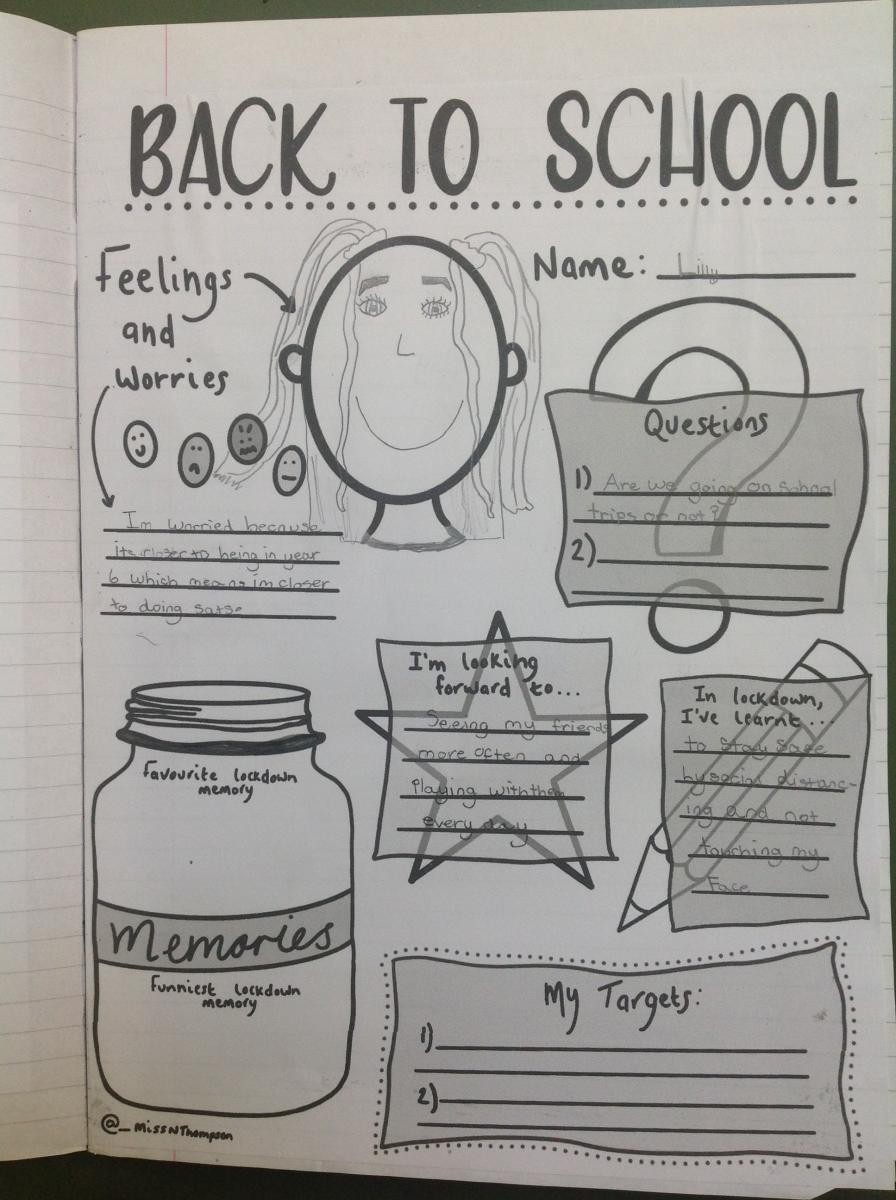 BACK TO SCHOOL
Feelings
and
Worries
Name: Lilly
I'm worried because
its closer to being in year
6 which means im closer
to doing satse
Questions
1) Are we going on school
trips or not?
2)
I'm looking
forward to...
Seeing my friends
more often and
playing with them
every day
In lockdown,
I've learnt...
to stay safe
by social distanc-
ing and not
touching my
Face
Favourite lockdown
memory
Memories
Funniest lockdown
memory
My Targets:
1)
2)
@_MissNThompson